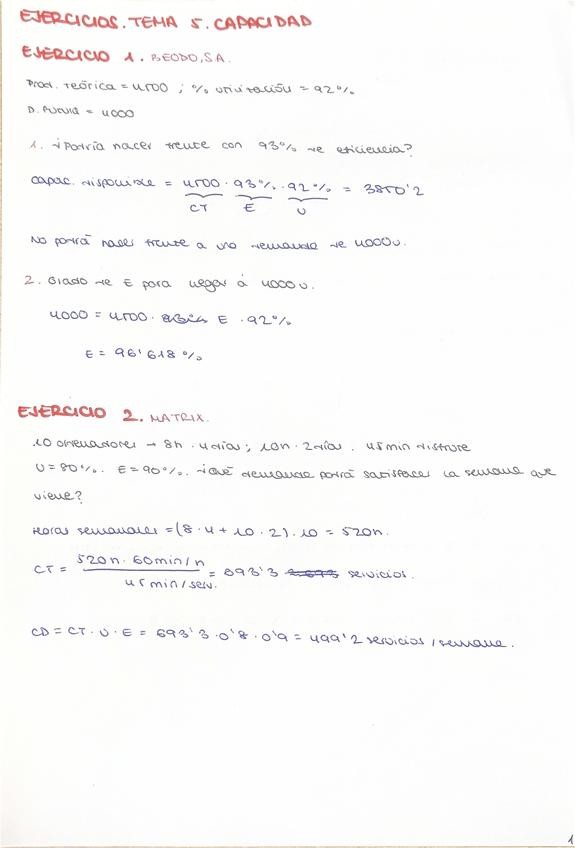 EJERCICIOS. TEMA 5. CAPACIDAD
EJERCICIO 1. BEODO, SA.
Prod. teórica = 4500 ; % utilización = 92%
D. futura = 4000
1. ¿Podría hacer frente con 93% de eficiencia?
Capac. disponible = 4500 · 93% · 92% = 3850'2
CT E U
No podrá hacer frente a una demanda de 4000u.
2. Grado de E para llegar a 4000u.
4000 = 4500 · E · 92%
E = 96'618%
EJERCICIO 2. MATRIX.
10 ordenadores → 8h · 4días; 10h · 2días. 45min disfrute
U = 80%. E = 90%. ¿Qué demanda podrá satisfacer la semana que
viene?
Horas semanales = (8 · 4 + 10 · 2) · 10 = 520h.
CT = 520h · 60min/h / 45min/serv. = 693'3 servicios.
CD = CT · U · E = 693'3 · 0'8 · 0'9 = 499'2 servicios/semana.
1